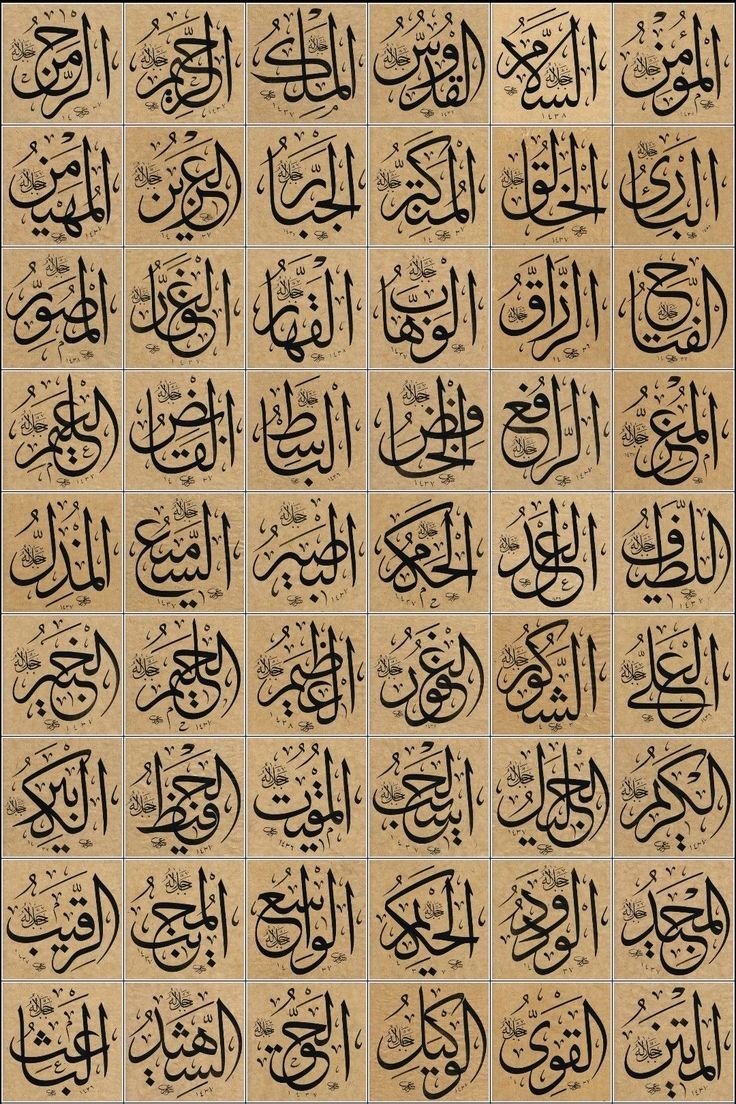 الرحمن جل جلاله
الرحيم جل جلاله
الملك جل جلاله
القدوس جل جلاله
السلام جل جلاله
المؤمن جل جلاله
المهيمن جل جلاله
العزيز جل جلاله
الجبار جل جلاله
المتكبر جل جلاله
الخالق جل جلاله
البارئ جل جلاله
المصور جل جلاله
الغفار جل جلاله
القهار جل جلاله
الوهاب جل جلاله
الرزاق جل جلاله
الفتاح جل جلاله
العليم جل جلاله
القابض جل جلاله
الباسط جل جلاله
الخافض جل جلاله
الرافع جل جلاله
المعز جل جلاله
المذل جل جلاله
السميع جل جلاله
البصير جل جلاله
الحكم جل جلاله
العدل جل جلاله
اللطيف جل جلاله
الخبير جل جلاله
الحليم جل جلاله
العظيم جل جلاله
الغفور جل جلاله
الشكور جل جلاله
العلي جل جلاله
الكبير جل جلاله
الحفيظ جل جلاله
المقيت جل جلاله
الحسيب جل جلاله
الجليل جل جلاله
الكريم جل جلاله
الرقيب جل جلاله
المجيب جل جلاله
الواسع جل جلاله
الحكيم جل جلاله
الودود جل جلاله
المجيد جل جلاله
الباعث جل جلاله
الشهيد جل جلاله
الحق جل جلاله
الوكيل جل جلاله
القوي جل جلاله
المتين جل جلاله